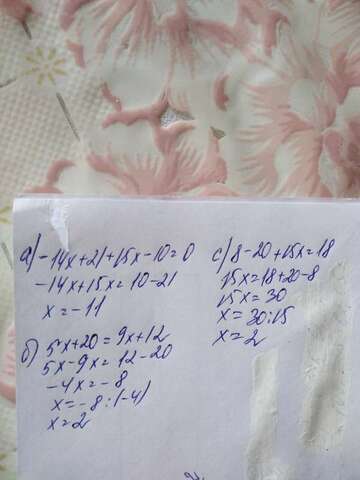 а) -14x+21+15x-10=0
-14x+15x=10-21
x=-11
б) 5x+20=9x+12
5x-9x=12-20
-4x=-8
x=-8:(-4)
x=2
с) 8-20+15x=18
15x=18+20-8
15x=30
x=30:15
x=2